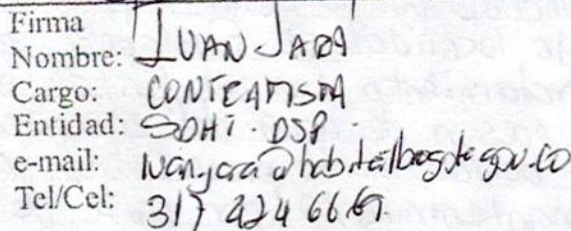 Firma
Nombre: IVAN JARA
Cargo: CONTRATISTA
Entidad: SDHT. DSP.
e-mail: ivan.jara@habitatbogota.gov.co
Tel/Cel: 317 424 6661